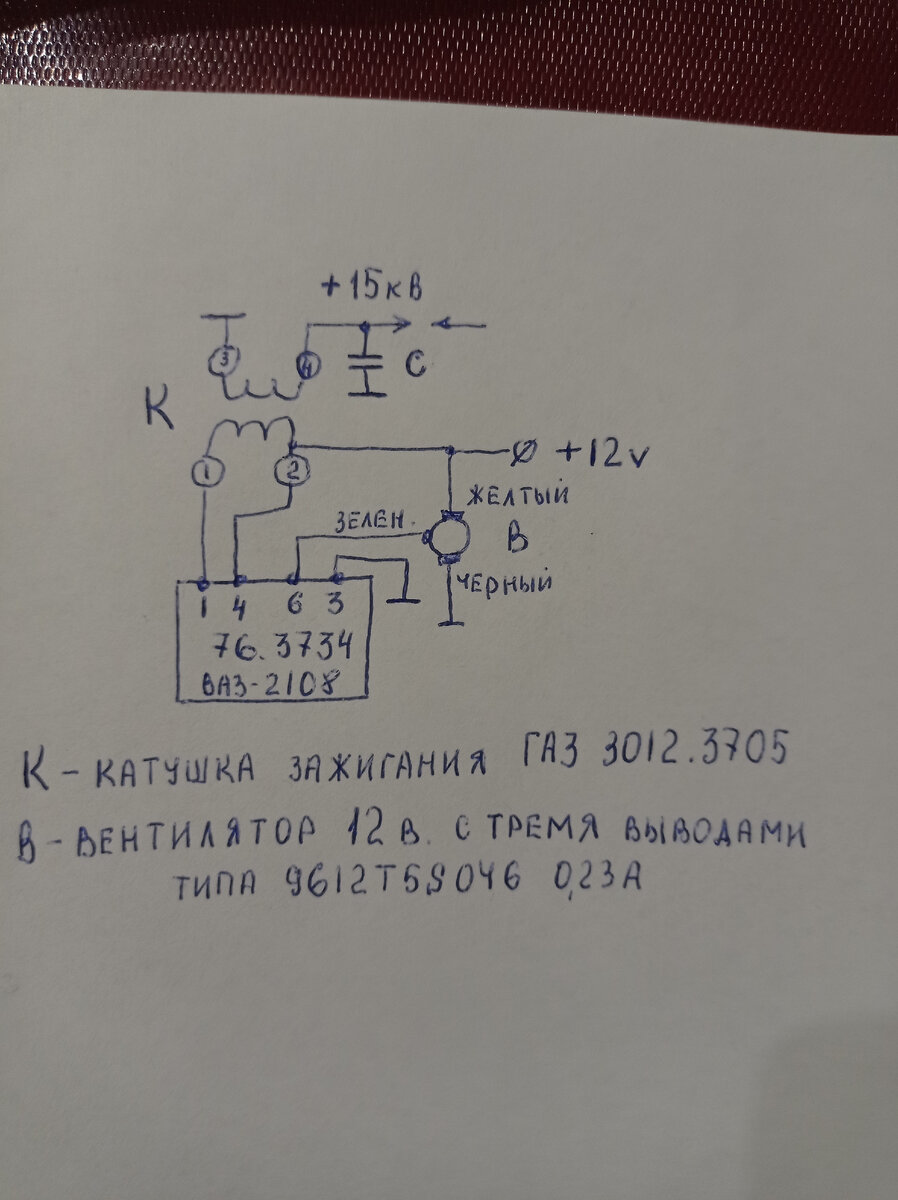 +15кВ
3 4 С
К
1 2 Ø +12v
ЖЕЛТЫЙ
ЗЕЛЕН. В
ЧЕРНЫЙ
1 4 6 3
76.3734
ВАЗ-2108
К - КАТУШКА ЗАЖИГАНИЯ ГАЗ 3012.3705
В - ВЕНТИЛЯТОР 12 В. С ТРЕМЯ ВЫВОДАМИ
ТИПА 9612T5S046 0,23А